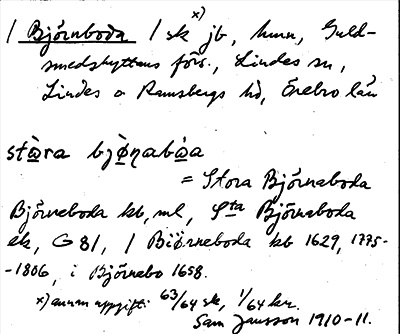 / Björnboda / sk x) jb, hmn, Guld-
smedshyttans förs., Lindes sn,
Lindes o Ramsbergs hd, Örebro län
stòra bjǿnabòa
= Stora Björnaboda
Björneboda kb, ml, Sta Björnaboda
ek, G 81, / Biörneboda kb 1629, 1775-
-1806, i Björnebo 1658.
x) annan uppgift: 63/64 sk, 1/64 kr.
Sam Jansson 1910-11.